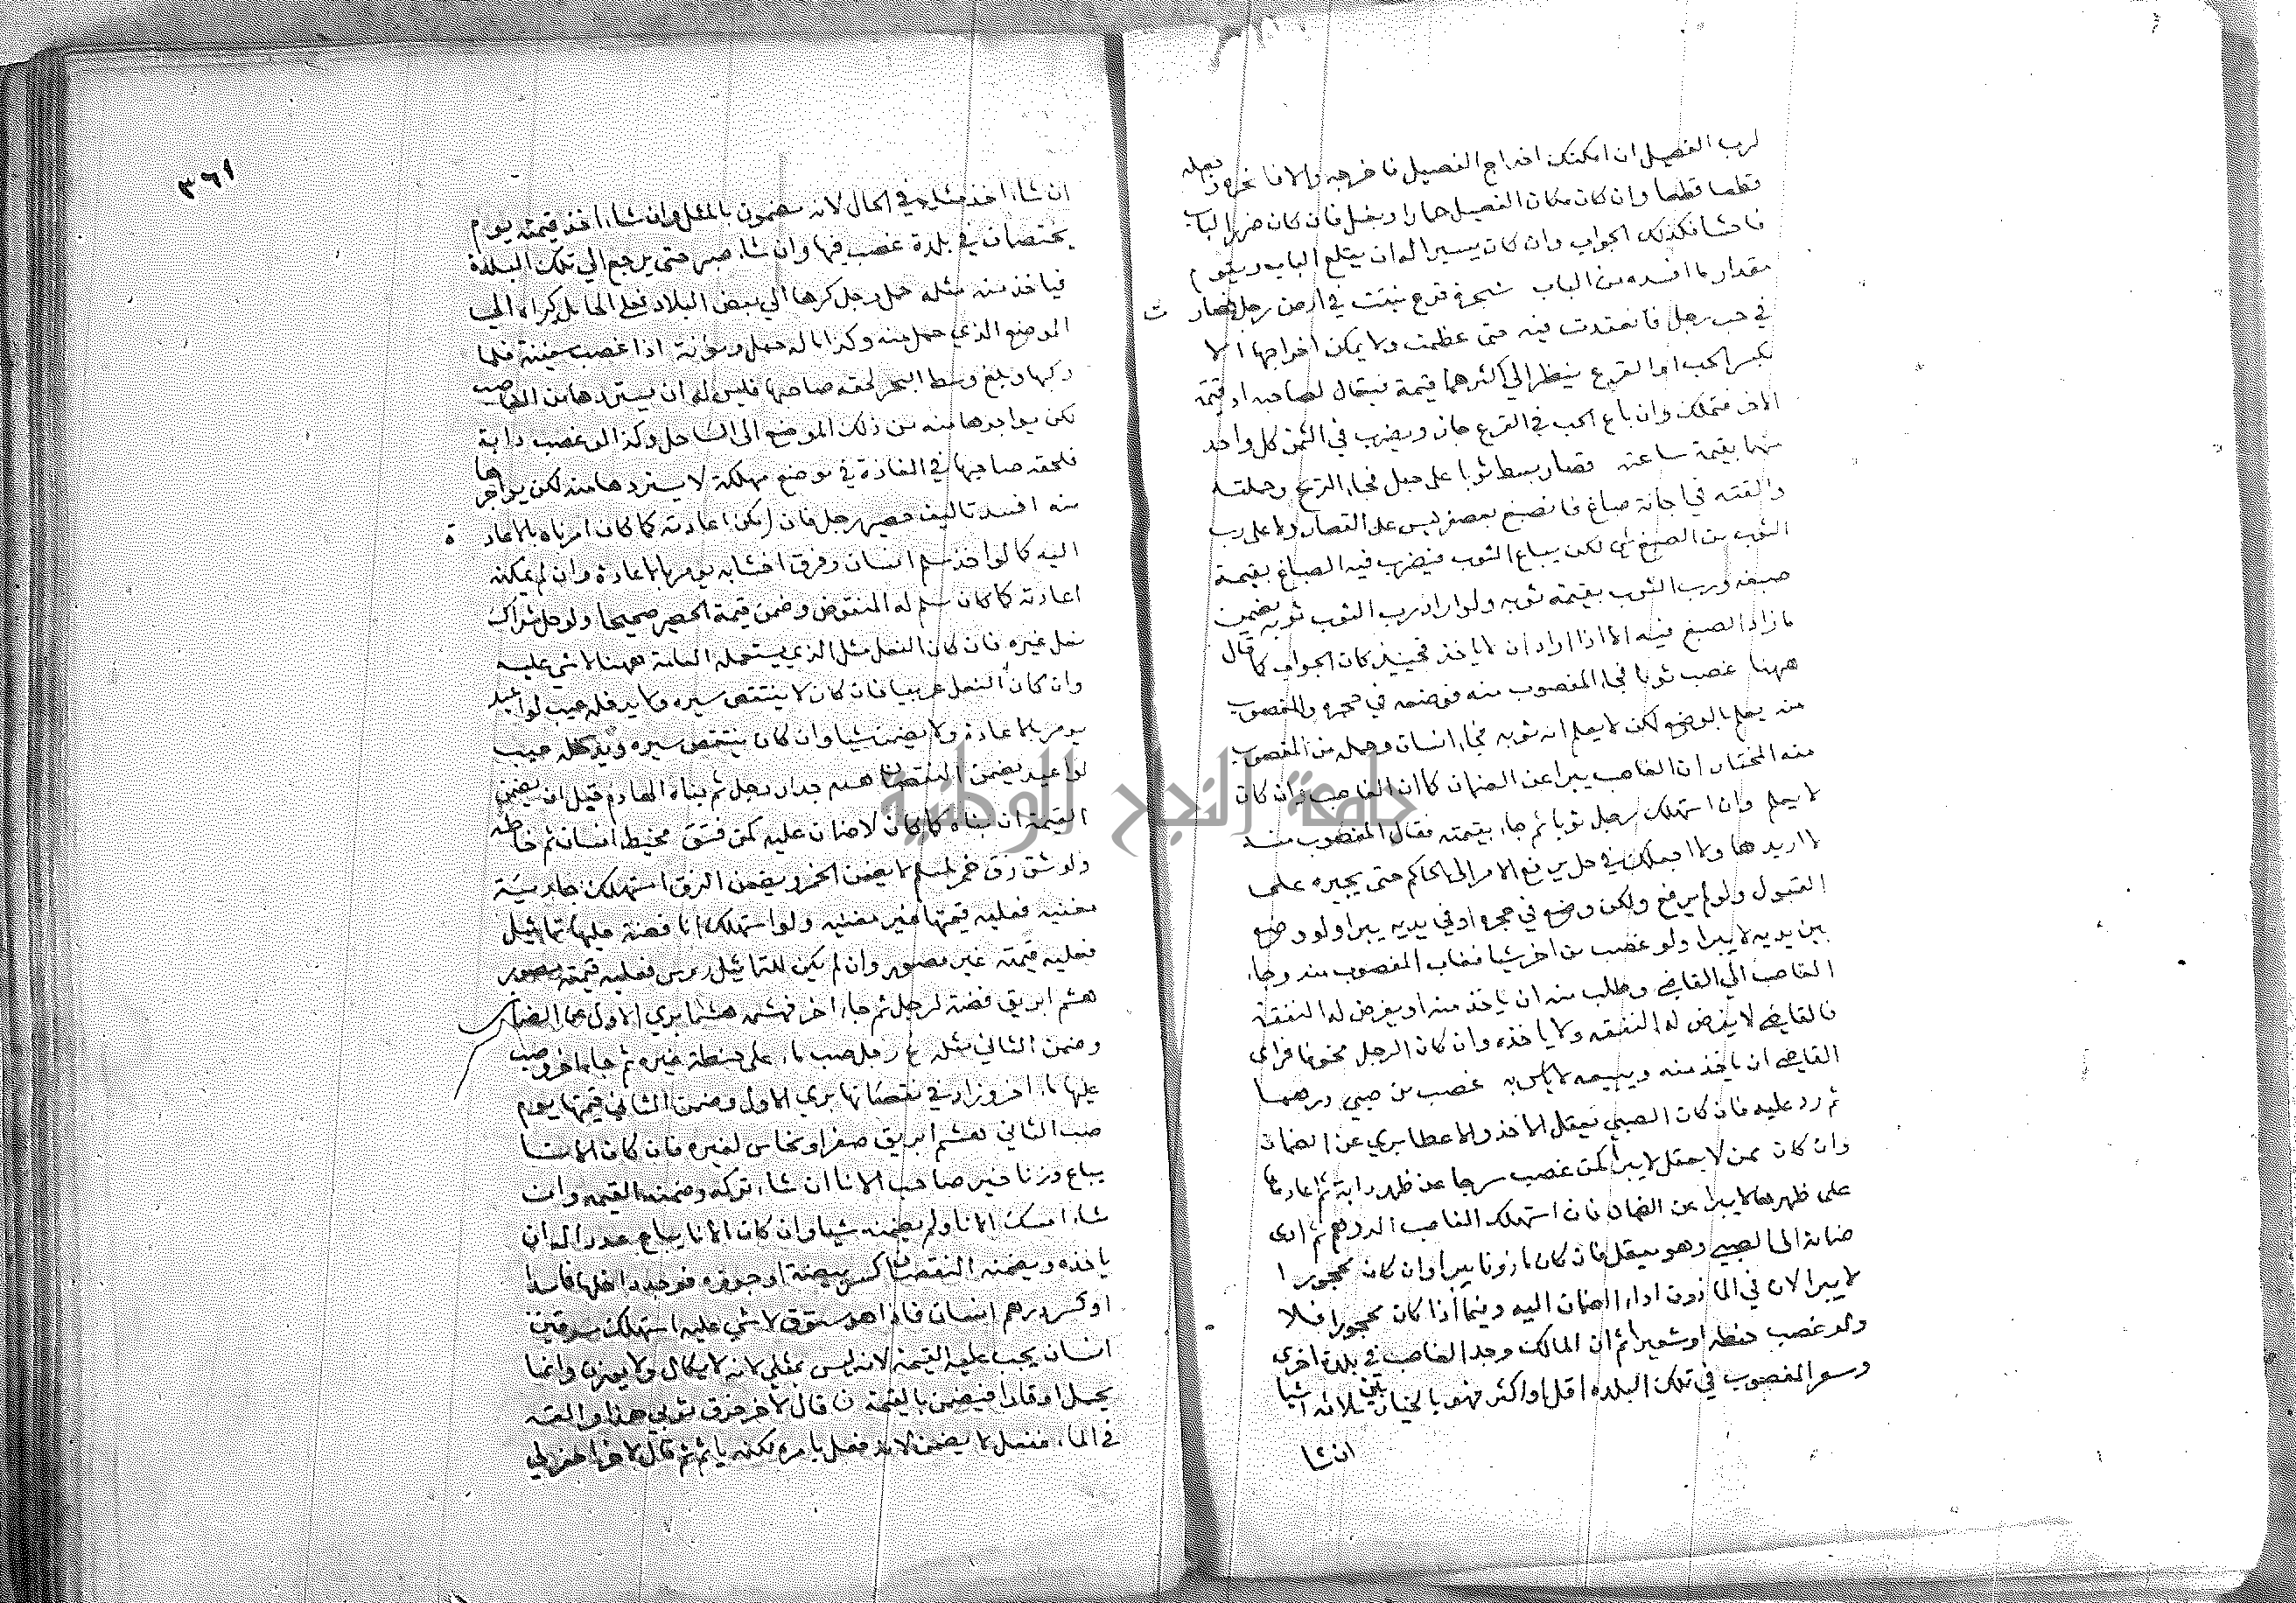 لرب الفصيل ان امكنك اخراج الفصيل فاخرجه والا فانحره واجعله
قطعا قطعا وان كان مكان الفصيل حمارا او بغل فان كان ضرر الباب
فاحشا فكذلك الجواب وان كان يسيرا له ان يقلع الباب ويقوم
مقدار ما افسده من الباب شجرة قرع نبتت في ارض رجل فصارت
في حب رجل فانعقدت فيه حتى عظمت ولا يمكن اخراجها الا
بكسر الحب او القرع ينظر الي اكثرهما قيمة فيقال لصاحبه اد قيمة
الاخر فتملك وان باع الحب في القرع جاز ويضرب في الثمن كل واحد
منهما بقيمة ساعته قصار بسط ثوبا على حبل فجاء الريح وحملته
والقته في اجانة صباغ فانصبغ بعصفر ليس على القصار ولا على رب
الثوب من الصبغ شي لكن يباع الثوب فيضرب فيه الصباغ بقيمة
صبغه ورب الثوب بقيمة ثوبه ولو اراد رب الثوب ثوبه يضمن
ما زاد الصبغ فيه الا اذا اراد ان لا ياخذ فحينئذ كان الجواب كما قال
ههنا غصب ثوبا فجاء المغصوب منه فوضعه في حجره والمغصوب
منه يعلم بالوضع لكن لا يعلم انه ثوبه فجاء انسان وحمله من المغصوب
منه المختار ان الغاصب يبرا عن الضمان كما ان الغاصب وان كان
لا يعلم وان استهلك رجل ثوبا ثم جاء بقيمته فقال المغصوب منه
لا اريدها ولا اجعلك في حل يرفع الامر الي الحاكم حتى يجبره على
القبول ولو لم يرفع ولكن وضع في حجره او في يديه يبرا ولو وضع
بين يديه لا يبرا ولو غصب من اخر شيا فغاب المغصوب منه وجاء
الغاصب الي القاضي وطلب منه ان ياخذ منه او يفرض له النفقة
فالقاضي لا يفرض له النفقه ولا ياخذه وان كان الرجل مخوفا فراى
القاضي ان ياخذ منه ويبيعه لا باس به غصب من صبي درهما
ثم رد عليه فان كان الصبي يعقل الاخذ والاعطا بري عن الضمان
وان كان ممن لا يعقل لا يبرا كمن غصب سرجا عن ظهر دابة ثم اعادها
على ظهرها لا يبرا عن الضمان فان استهلك الغاصب الدرهم ثم ادى
ضمانه الى الصبي وهو يعقل فان كان ماذونا يبرا وان كان محجورا
لا يبرا لان في الماذون اداء الضمان اليه وفيما اذا كان محجورا فلا
ولو غصب حنطه او شعيرا ثم ان المالك وجد الغاصب في بلدة اخرى
وسعر المغصوب في تلك البلده اقل او اكثر فهو بالخيار بين ثلاثه اشيا
ان شا
٣٦١
ان شاء اخذ مثله في الحال لانه مضمون بالمثل وان شاء اخذ قيمته يوم
يختصمان في بلدة غصب فيها وان شاء صبر حتى يرجع الي تلك البلدة
فياخذ منه مثله حمل رجل كرها الي بعض البلاد فعلى الحامل كراه الي
الموضع الذي حمل منه وكذا ما له حمل ومؤنة اذا غصب سفينة فلما
ركبها وبلغ وسط البحر لحقه صاحبها فليس له ان يستردها من الغاصب
لكن يواجرها منه من ذلك الموضع الى الساحل وكذا لو غصب دابة
فلحقه صاحبها في المفازة في موضع مهلكة لا يستردها منه لكن يواجرها
منه افسد تاليف حصير رجل فان امكن اعادته كما كان امرناه بالاعادة
اليه كما لو اخذ سلم انسان وفرق اخشابه يومر بالاعادة وان لم يمكنه
اعادته كما كان سلم له المنقوض وضمن قيمة الحصير صحيحا ولو حل شراك
نعل غيره فان كان النعل مثل الذي يستعمله العامة ههنا لا شي عليه
وان كان النعل عربيا فان كان لا ينتقص سيره ولا يدخله عيب لو اعيد
يومر بالاعادة ولا يضمن شيا وان كان ينتقص سيره ويدخله عيب
لو اعيد يضمن النقصان هدم جدار رجل ثم بناه الهادم قبل ان يضمن
القيمة ان بناه كما كان لا ضمان عليه كمن فتق مخيط انسان ثم خاطه
ولو شق زق خمر لمسلم لا يضمن الخمر ويضمن الزق استهلك جارية
مغنيه فعليه قيمتها غير مغنيه ولو استهلك انا فضة عليها تماثيل
فعليه قيمته غير مصور وان لم يكن للتماثيل روس فعليه قيمته مصور
هشم ابريق فضة لرجل ثم جاء اخر فهشمه هشما بري الاول عن الضمان
وضمن الثاني مثله رجل صب ماء على حنطة غيره ثم جاء اخر وصب
عليها ماء اخر وزاد في نقصانها بري الاول وضمن الثاني قيمتها يوم
صب الثاني هشم ابريق صفر او نحاس لغيره فان كان الانا
يباع وزنا خير صاحب الانا ان شاء تركه وضمنه القيمه وان
شاء امسك الانا ولم يضمنه شيا وان كان الانا يباع عددا له ان
ياخذه ويضمنه النقصان كسر بيضة او جوزه فوجد داخلها فاسدا
او كسر درهم انسان فاذا هو ستوق لا شي عليه استهلك سرقين
انسان يجب عليه القيمة لانه ليس بمثلي لانه لا يكال ولا يوزن وانما
يحمل اوقارا فيضمن بالقيمة قال لاخر خرق ثوبي هذا والقه
في الماء ففعل لا يضمن لانه فعل بامره لكنه ياثم قال لاخر احفر لي
جامعة النجاح الوطنية